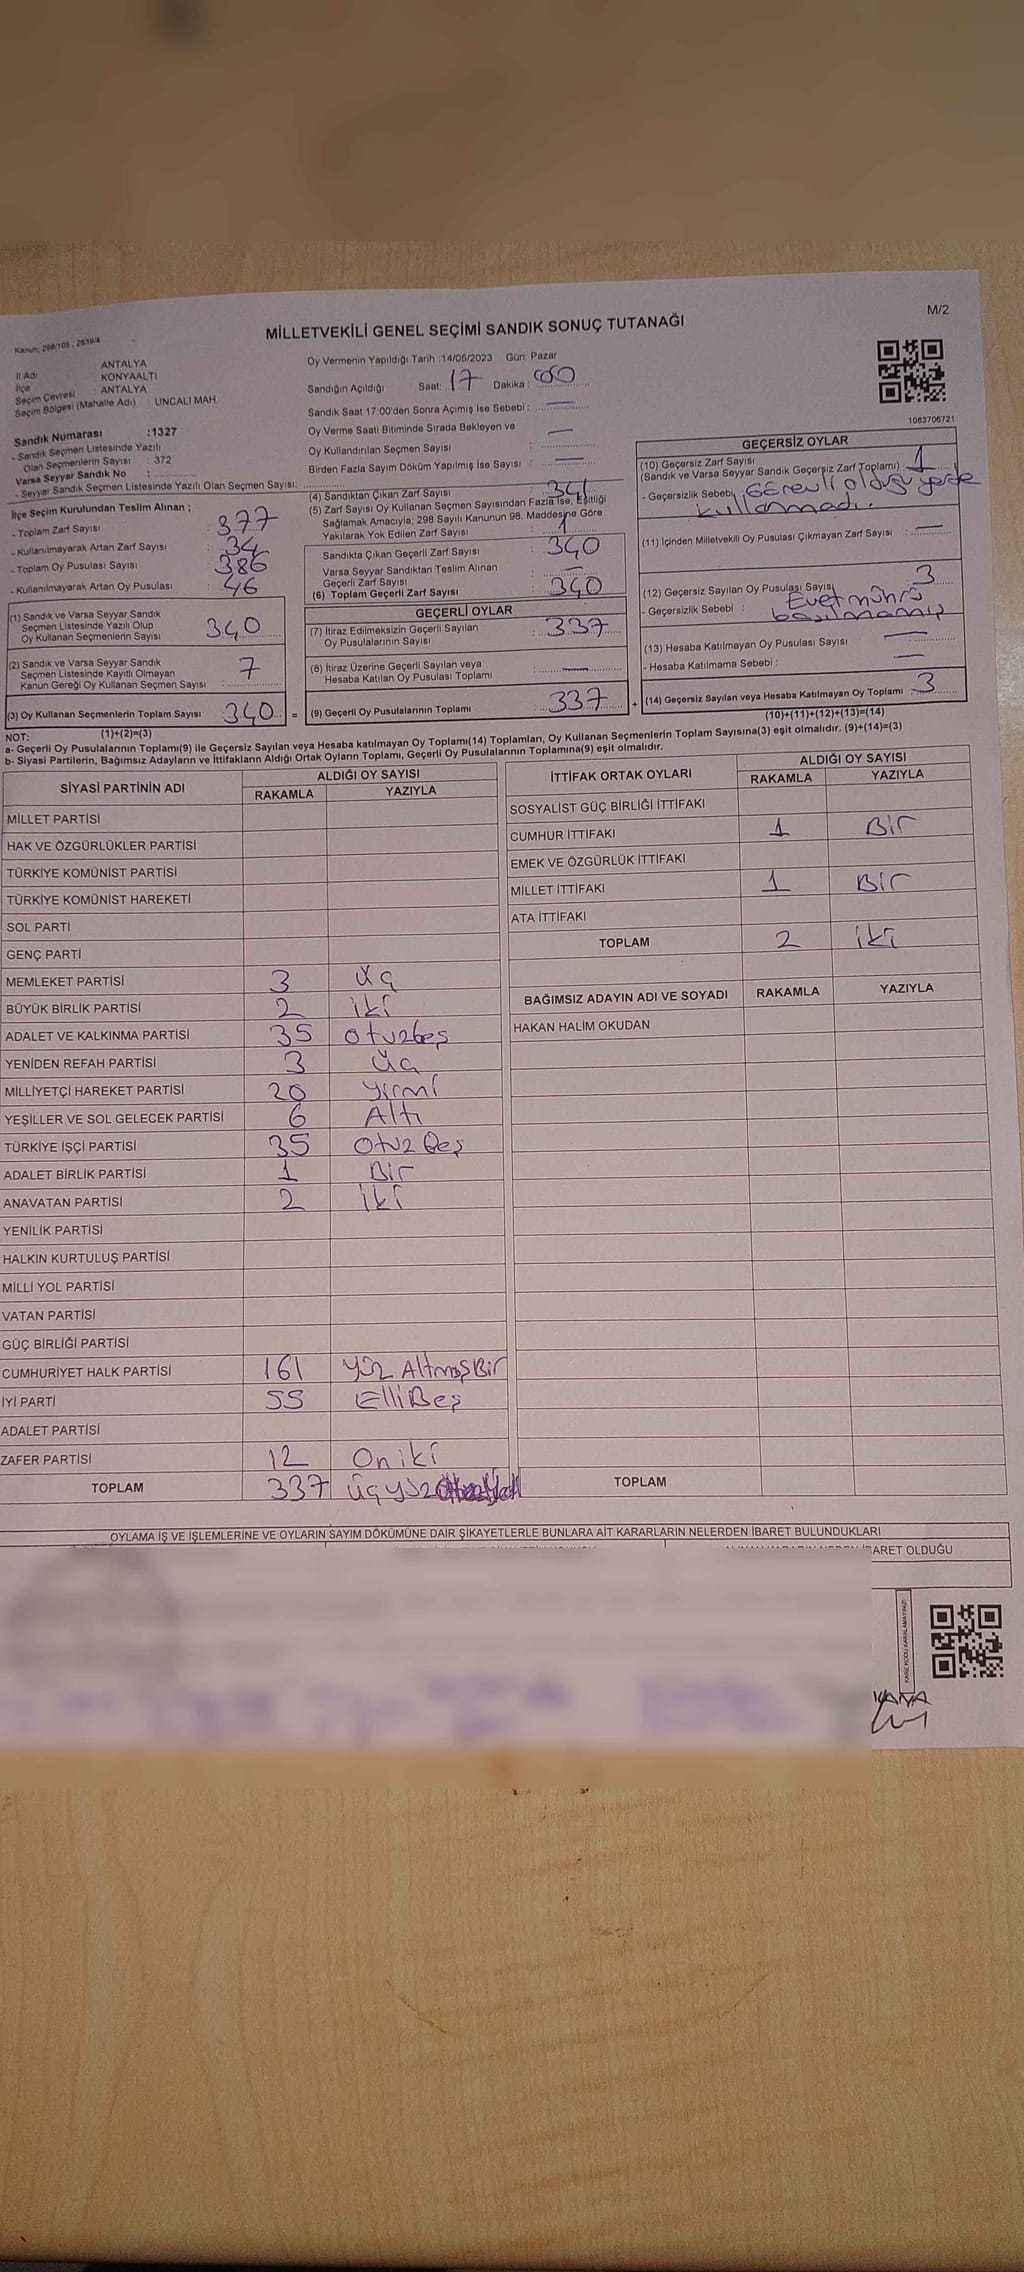 M/2
MİLLETVEKİLİ GENEL SEÇİMİ SANDIK SONUÇ TUTANAĞI
Kanun: 298/105 , 2839/4
İl Adı : ANTALYA
İlçe : KONYAALTI
Seçim Çevresi : ANTALYA
Seçim Bölgesi (Mahalle Adı) : UNCALI MAH.
Oy Vermenin Yapıldığı Tarih :14/05/2023 Gün: Pazar
Sandığın Açıldığı Saat: 17 Dakika : 00
Sandık Saat 17:00'den Sonra Açımış İse Sebebi : —
Oy Verme Saati Bitiminde Sırada Bekleyen ve
Oy Kullandırılan Seçmen Sayısı : —
Birden Fazla Sayım Döküm Yapılmış İse Sayısı : —
1083706721
Sandık Numarası :1327
- Sandık Seçmen Listesinde Yazılı
Olan Seçmenlerin Sayısı : 372
Varsa Seyyar Sandık No :
- Seyyar Sandık Seçmen Listesinde Yazılı Olan Seçmen Sayısı:
İlçe Seçim Kurulundan Teslim Alınan ;
- Toplam Zarf Sayısı : 377
- Kullanılmayarak Artan Zarf Sayısı : 34
- Toplam Oy Pusulası Sayısı : 386
- Kullanılmayarak Artan Oy Pusulası : 46
(1) Sandık ve Varsa Seyyar Sandık
Seçmen Listesinde Yazılı Olup
Oy Kullanan Seçmenlerin Sayısı : 340
(2) Sandık ve Varsa Seyyar Sandık
Seçmen Listesinde Kayıtlı Olmayan
Kanun Gereği Oy Kullanan Seçmen Sayısı : 7
(3) Oy Kullanan Seçmenlerin Toplam Sayısı 340 =
(4) Sandıktan Çıkan Zarf Sayısı : 341
(5) Zarf Sayısı Oy Kullanan Seçmen Sayısından Fazla İse, Eşitliği
Sağlamak Amacıyla; 298 Sayılı Kanunun 98. Maddesine Göre
Yakılarak Yok Edilen Zarf Sayısı : 1
Sandıkta Çıkan Geçerli Zarf Sayısı : 340
Varsa Seyyar Sandıktan Teslim Alınan
Geçerli Zarf Sayısı : —
(6) Toplam Geçerli Zarf Sayısı : 340
GEÇERLİ OYLAR
(7) İtiraz Edilmeksizin Geçerli Sayılan
Oy Pusulalarının Sayısı : 337
(8) İtiraz Üzerine Geçerli Sayılan veya
Hesaba Katılan Oy Pusulası Toplamı : —
(9) Geçerli Oy Pusulalarının Toplamı : 337 +
GEÇERSİZ OYLAR
(10) Geçersiz Zarf Sayısı
(Sandık ve Varsa Seyyar Sandık Geçersiz Zarf Toplamı) : 1
- Geçersizlik Sebebi : Görevli olduğu yerde
kullanmadı.
(11) İçinden Milletvekili Oy Pusulası Çıkmayan Zarf Sayısı : —
(12) Geçersiz Sayılan Oy Pusulası Sayısı 3
- Geçersizlik Sebebi : Evet mührü
basılmamış
(13) Hesaba Katılmayan Oy Pusulası Sayısı : —
- Hesaba Katılmama Sebebi : —
(14) Geçersiz Sayılan veya Hesaba Katılmayan Oy Toplamı : 3
(10)+(11)+(12)+(13)=(14)
NOT: (1)+(2)=(3)
a- Geçerli Oy Pusulalarının Toplamı(9) ile Geçersiz Sayılan veya Hesaba katılmayan Oy Toplamı(14) Toplamları, Oy Kullanan Seçmenlerin Toplam Sayısına(3) eşit olmalıdır. (9)+(14)=(3)
b- Siyasi Partilerin, Bağımsız Adayların ve İttifakların Aldığı Ortak Oyların Toplamı, Geçerli Oy Pusulalarının Toplamına(9) eşit olmalıdır.
SİYASİ PARTİNİN ADI ALDIĞI OY SAYISI
RAKAMLA YAZIYLA
MİLLET PARTİSİ
HAK VE ÖZGÜRLÜKLER PARTİSİ
TÜRKİYE KOMÜNİST PARTİSİ
TÜRKİYE KOMÜNİST HAREKETİ
SOL PARTİ
GENÇ PARTİ
MEMLEKET PARTİSİ 3 Üç
BÜYÜK BİRLİK PARTİSİ 2 İki
ADALET VE KALKINMA PARTİSİ 35 Otuzbeş
YENİDEN REFAH PARTİSİ 3 Üç
MİLLİYETÇİ HAREKET PARTİSİ 20 Yirmi
YEŞİLLER VE SOL GELECEK PARTİSİ 6 Altı
TÜRKİYE İŞÇİ PARTİSİ 35 Otuz Beş
ADALET BİRLİK PARTİSİ 1 Bir
ANAVATAN PARTİSİ 2 İki
YENİLİK PARTİSİ
HALKIN KURTULUŞ PARTİSİ
MİLLİ YOL PARTİSİ
VATAN PARTİSİ
GÜÇ BİRLİĞİ PARTİSİ
CUMHURİYET HALK PARTİSİ 161 Yüz AltmışBir
İYİ PARTİ 55 ElliBeş
ADALET PARTİSİ
ZAFER PARTİSİ 12 Oniki
TOPLAM 337 Üçyüz
İTTİFAK ORTAK OYLARI ALDIĞI OY SAYISI
RAKAMLA YAZIYLA
SOSYALİST GÜÇ BİRLİĞİ İTTİFAKI
CUMHUR İTTİFAKI 1 Bir
EMEK VE ÖZGÜRLÜK İTTİFAKI
MİLLET İTTİFAKI 1 Bir
ATA İTTİFAKI
TOPLAM 2 iki
BAĞIMSIZ ADAYIN ADI VE SOYADI RAKAMLA YAZIYLA
HAKAN HALİM OKUDAN
TOPLAM
OYLAMA İŞ VE İŞLEMLERİNE VE OYLARIN SAYIM DÖKÜMÜNE DAİR ŞİKAYETLERLE BUNLARA AİT KARARLARIN NELERDEN İBARET BULUNDUKLARI
OLDUĞU
KARE KODU KARALAMAYINIZ!